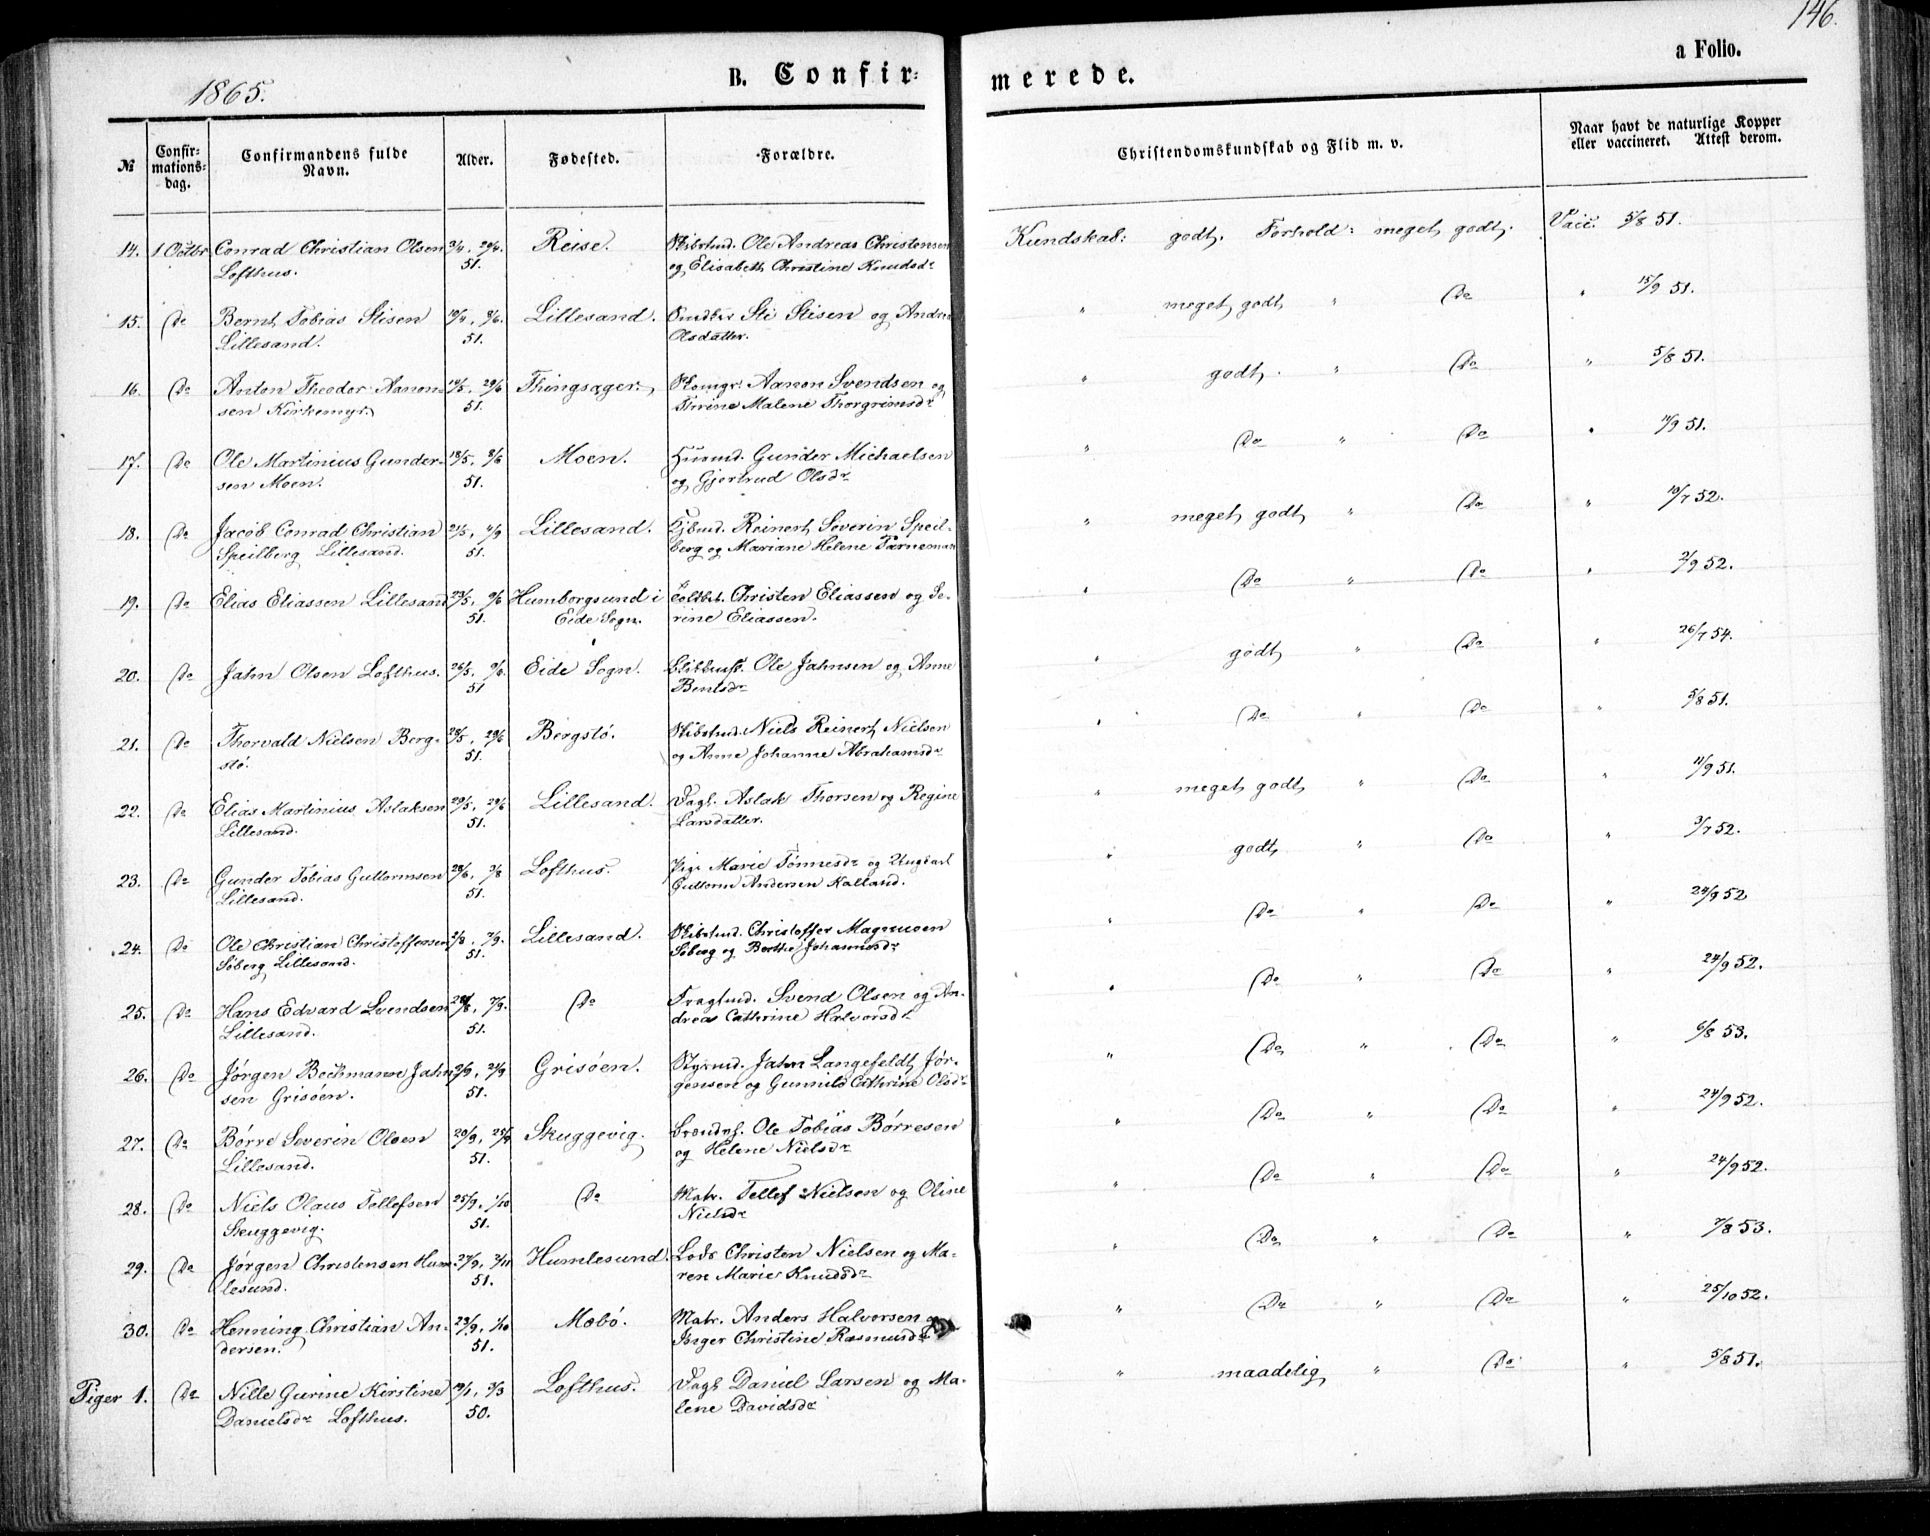 146.
a Folio.
1865.
B. Confir-
merede.
№
Confir-
mations-
dag.
Confirmandens fulde
Navn.
Alder.
Fødested.
Forældre.
Christendomskundskab og Flid m. v.
Naar havt de naturlige Kopper
eller vaccineret. Attest derom.
14. 1 Octbr Conrad Christian Olsen 3/4, 29/4. Reise. Skibstmd. Ole Andreas Christensen Kundskab: godt. Forhold: meget godt. Vacc. 5/8 51.
Lofthus. 51. og Elisabeth Christine Knudsdr
15. Do Bernt Tobias Stisen 10/4, 8/6. Lillesand. Sti Stisen og Andrea " meget godt " Do " 15/9 51.
Lillesand. 51. Olsdatter.
16. Do Anton Theodor Aanon- 14/5, 29/6 Thingsager. Aanon Svendsen og " godt. " Do " 5/8 51.
sen Kirkemyr. 51. Thrine Malene Thorgrimsdr
17. Do Ole Martinius Gunder- 18/5, 8/6 Moen. Huusmd. Gunder Michaelsen " Do " Do " 11/9 51.
sen Moen. 51. og Gjertrud Olsdr
18. Do Jacob Conrad Christian 21/5, 4/9 Lillesand. Kjbmd. Reinert Severin Speil- " meget godt " Do " 10/7 52.
Speilberg Lillesand. 51. berg og Mariane Helene Tarneman
19. Do Elias Eliassen Lillesand 23/5, 9/6 Humborgsund i Toldbet. Christen Eliassen og Se- " Do " Do " 2/9 52.
51. Eide Sogn. rine Eliassen.
20. Do Jahn Olsen Lofthus. 26/5, 9/6. Eide Sogn. Ole Jahnsen og Anne " godt " Do " 26/7 54.
51 Bentsdr
21. Do Thorvald Nielsen Berg- 28/5, 29/6 Bergstø. Skibstmd. Niels Reinert Nielsen " Do " Do " 5/8 51.
stø. 51. og Anne Johanne Abrahamsdr
22. Do Elias Martinius Aslaksen 29/5, 29/6 Lillesand. Dagl. Aslak Thorsen og Regine " meget godt " Do " 11/9 51.
Lillesand. 51. Larsdatter.
23. Do Gunder Tobias Guttormsen 28/6, 3/8 Lofthus. Pige Marie Tønnesdr og Ungkarl " godt " Do " 3/7 52.
Lillesand. 51. Guttorm Andersen Kalland.
24. Do Ole Christian Christoffersen 2/8, 7/9. Lillesand. Skibstmd. Christoffer Magnusen " Do " Do " 24/9 52
Søberg Lillesand. 51. Søberg og Berthe Johannesdr
25. Do Hans Edvard Svendsen 7/9. Do Fragtmd. Svend Olsen og An- " Do " Do " 24/9 52.
Lillesand. 51. dreas Cathrine Halvorsdr
26. Do Jørgen Beckmann Jahn 2/9, 21/9 Grisøen. Styrmd. Jahn Langefeldt Jør- " Do " Do " 6/8 53.
sen Grisøen. 51. gensen og Gunnild Cathrine Olsdr
27. Do Børre Severin Olsen 20/9, 25/9 Skuggevig. Ole Tobias Børresen " Do " Do " 24/9 52.
Lillesand. 51. og Helene Nielsdr
28. Do Niels Olaus Tellefsen 25/9, 1/10 Do Matr. Tellef Nielsen og Oline " Do " Do " 24/9 52.
Skuggevig. 51. Nielsdr
29. Do Jørgen Christensen Hum 27/9, 2/11 Humlesund. Lods Christen Nielsen og Ma- " Do " Do " 7/8 53.
lesund. 51. ren Marie Knudsdr
30. Do Henning Christian An- 29/9, 1/10 Møbø. Matr. Anders Halvorsen og " Do " Do " 25/10 52.
dersen. 51. Inger Christine Rasmusdr
Piger 1. Do Nille Gurine Kirstine 19/1, 3/3 Lofthus. Dagl Daniel Larsen og Ma- " maadelig " Do " 5/8 51.
Danielsdr Lofthus. 50. lene Davidsdr